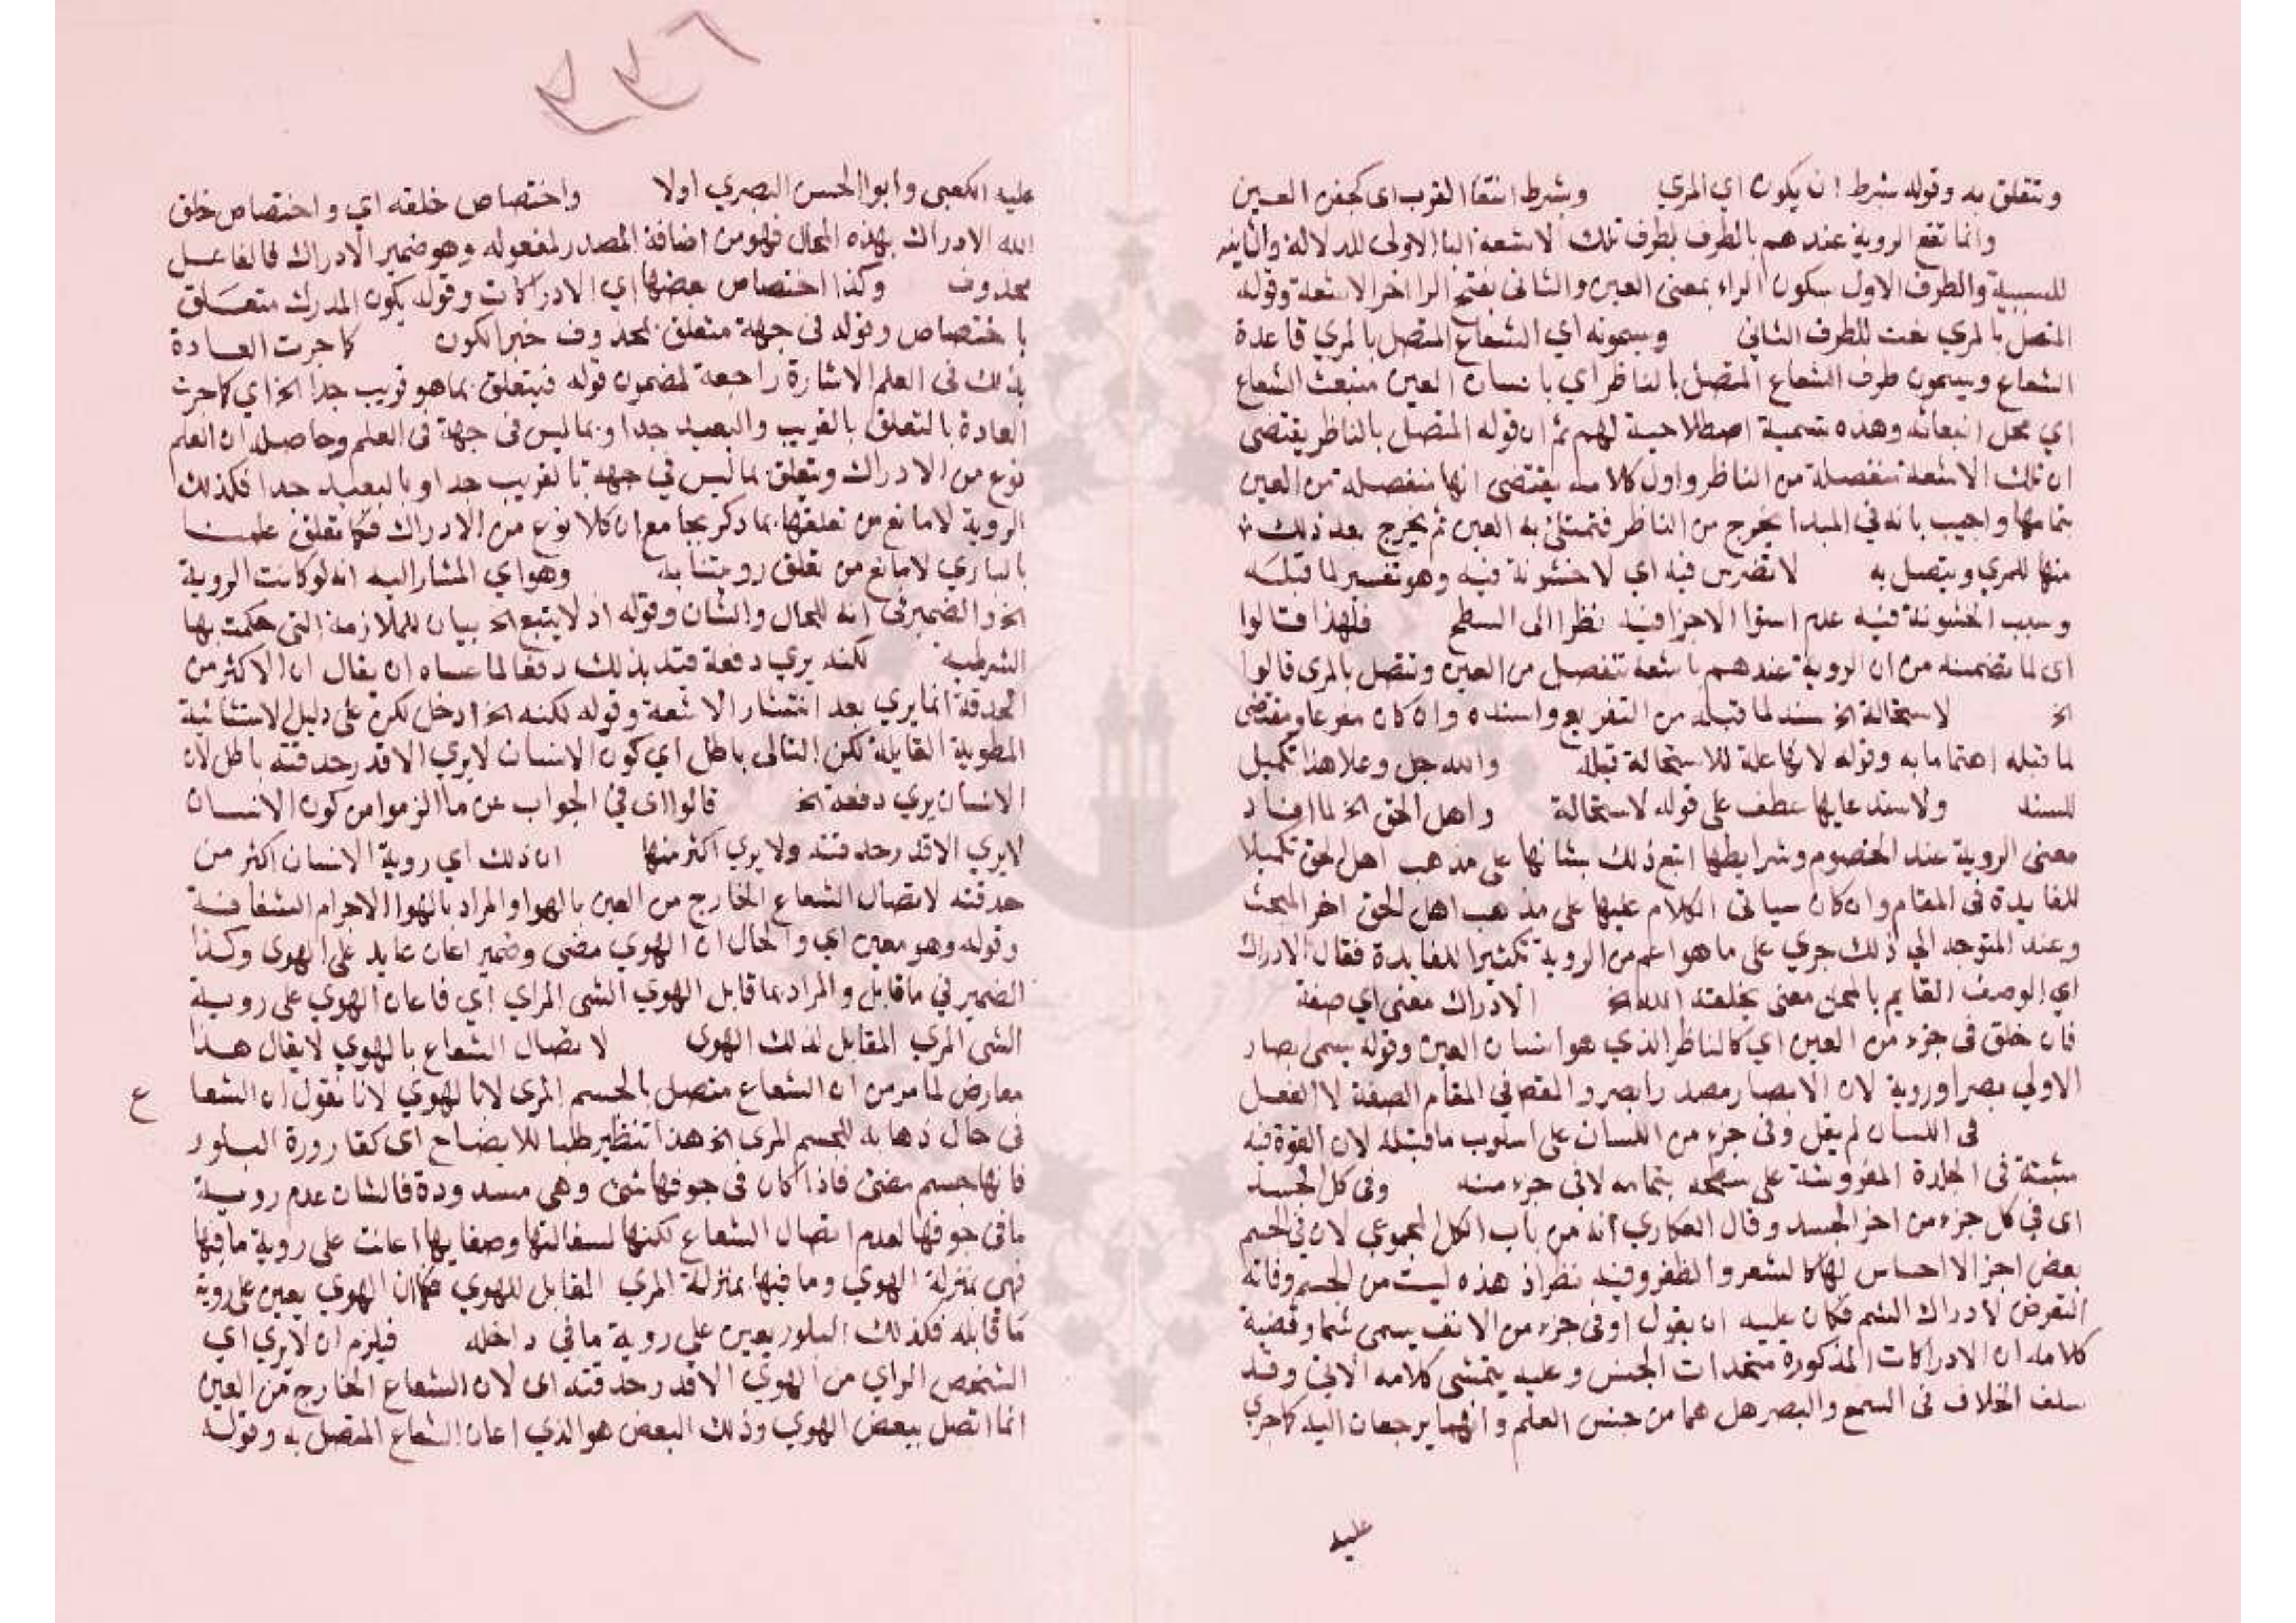 وتتعلق به وقوله بشرط ان يكون اي المري وبشرط انتفا القرب اى كجفن العين
وانما تقع الروية عندهم بالطرف بطرف تلك الاشعة البا الاولى للدلالة والثانية
للسببية والطرف الاول بسكون الراء بمعنى العين والثانى بفتح الرا اخر الاشعة وقوله
المتصل بالمري نعت للطرف الثانى ويسمونه اي الشعاع المتصل بالمري قاعدة
الشعاع ويسمون طرف الشعاع المتصل بالناظر اي بانسان العين منبعث الشعاع
اي محل انبعاثه وهذه تسمية اصطلاحية لهم ثم ان قوله المتصل بالناظر يقتضى
ان تلك الاشعة منفصلة من الناظر واول كلامه يقتضى انها منفصلة من العين
بتمامها واجيب بانه في المبدا يخرج من الناظر فتمتلئ به العين ثم يخرج بعد ذلك
منها للمري ويتصل به لا تضريس فيه اي لا خشونة فيه وهو تفسير لما قبله
وسبب الخشونة فيه عدم استوا الاجزا فيه نظرا الى السطح فلهذا قالوا
اى لما تضمنه من ان الروية عندهم باشعة تنفصل من العين وتتصل بالمرى قالوا
الخ لاستحالة الخ سند لما قبله من التفريع واسنده وان كان مفرعا ومقتضى
لما قبله اهتماما به وقوله لانها علة للاستحالة قبله والله جل وعلا هذا تكميل
للسند ولاستدعايها عطف على قوله لاستحالة واهل الحق الخ لما افاد
معنى الروية عند الخصوم وشرايطها اتبع ذلك ببيانها على مذهب اهل الحق تكميلا
للفايدة فى المقام وان كان سياتى الكلام عليها على مذهب اهل الحق اخر المبحث
وعند المتوجه الي ذلك جري على ما هو اعم من الروية تكثيرا للفايدة فقال الادراك
اي الوصف القايم بالمحل معنى يخلقه الله الخ الادراك معنى اي صفة
فان خلق فى جزء من العين اي كالناظر الذي هو انسان العين وقوله يسمى ابصار
الاولي بصرا وروية لان الابصار مصدر ابصر والقصد في المقام الصفة لا الفعل
فى اللسان لم يقل وفى جزء من اللسان على اسلوب ما قبله لان القوة فيه
مثبتة فى الجلدة المفروشة على سطحه بتمامه لا فى جزء منه وفى كل الجسد
اى في كل جزء من اجزا الجسد وقال العكاري انه من باب الكل المجموعي لان في الجسم
بعض اجزا لا احساس لها كالشعر والظفر وفيه نظر اذ هذه ليست من الجسم وفاته
التعرض لادراك الشم فكان عليه ان يقول او فى جزء من الانف يسمى شما وقضية
كلامه ان الادراكات المذكورة متحدات الجنس وعليه يتمشى كلامه الاتي وقد
سلف الخلاف فى السمع والبصر هل هما من جنس العلم وانهما يرجعان اليه كما جرى
عليه
عليه الكعبى وابوا الحسن البصري اولا واختصاص خلقه اي واختصاص خلق
الله الادراك بهذه المحال فهو من اضافة المصدر لمفعوله وهو ضمير الادراك فالفاعل
محذوف وكذا اختصاص بعضها اي الادراكات وقوله يكون المدرك متعلق
باختصاص وقوله فى جهة متعلق بمحذوف خبر الكون كما جرت العادة
بذلك فى العلم الاشارة راجعة لمضمون قوله فيتعلق بما هو قريب جدا الخ اي كما جرت
العادة بالتعلق بالقريب والبعيد جدا وبما ليس فى جهة فى العلم وحاصله ان العلم
نوع من الادراك ويتعلق بما ليس في جهة بالقريب جدا وبالبعيد جدا فكذلك
الروية لا مانع من تعلقها بما ذكر بجامع ان كلا نوع من الادراك فكما تعلق علمنا
بالباري لا مانع من تعلق رويتنا به وهو اي المشار اليه انه لو كانت الروية
الخ والضمير فى انه للحال والشان وقوله اذ لا يتبع الخ بيان للملازمة التى حكمت بها
الشرطية لكنه يري دفعة قيد بذلك دفعا لما عساه ان يقال ان الاكثر من
الحدقة انما يري بعد انتشار الاشعة وقوله لكنه الخ ادخل لكن على دليل الاستثنائية
المطوية القايلة لكن التالى باطل اي كون الانسان لا يري الا قدر حدقته باطل لان
الانسان يري دفعة الخ قالوا اى في الجواب عن ما الزموا من كون الانسان
لا يري الا قدر حدقته ولا يري اكثر منها ان ذلك اي روية الانسان اكثر من
حدقته لاتصال الشعاع الخارج من العين بالهوا والمراد بالهوا الاجرام الشفافة
وقوله وهو معين اي والحال ان الهوي مضى وضمير اعان عايد على الهوى وكذا
الضمير في ما قابل والمراد بما قابل الهوي الشى المراي اي فاعان الهوي على روية
الشى المري المقابل لذلك الهوى لاتصال الشعاع بالهوي لا يقال هذا
معارض لما مر من ان الشعاع متصل بالجسم المرى لا بالهوي لانا نقول ان الشعاع
فى حال ذهابه للجسم المرى الخ هذا تنظير طلبا للايضاح اى كقارورة البلور
فانها جسم مضئ فاذا كان فى جوفها شئ وهى مسدودة فالشان عدم روية
ما فى جوفها لعدم اتصال الشعاع لكنها لسقالتها وصفايها اعانت على روية ما فيها
فهى بمنزلة الهوي وما فيها بمنزلة المري المقابل للهوي فكما ان الهوي يعين على روية
ما قابله فكذلك البلور يعين على روية ما في داخله فيلزم ان لا يري اي
الشخص الراي من الهوي الا قدر حدقته اى لان الشعاع الخارج من العين
انما اتصل ببعض الهوي وذلك البعض هو الذي اعان الشعاع المتصل به وقوله